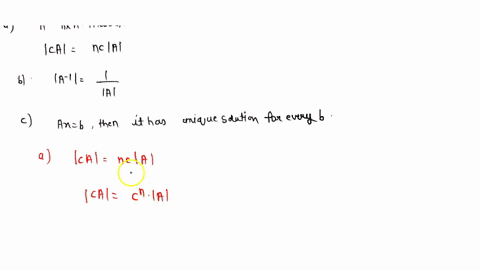 |CA| = nc|A|
b) |A-1| = 1/|A|
c) An=b, then it has unique solution for every b.
a) |CA| = nc|A|
|CA| = Cⁿ.|A|